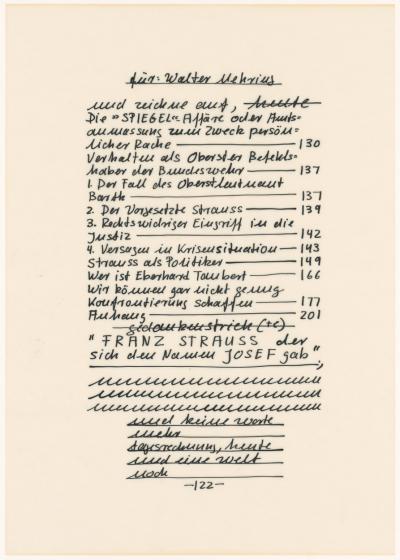 für: Walter Mehring
und zeichne auf, heute
Die »SPIEGEL«-Affäre oder Amts=
anmassung zum Zweck persön=
licher Rache — 130
Verhalten als Oberster Befehls=
haber der Bundeswehr — 137
1. Der Fall des Oberstleutnant
Barth — 137
2. Der Vorgesetzte Strauss — 139
3. Rechtswidriger Eingriff in die
Justiz — 142
4. Versagen in Krisensituation — 143
Strauss als Politiker — 149
Wer ist Eberhard Taubert — 166
Wir können gar nicht genug
Konfrontierung schaffen — 177
Anhang — 201
gedankenstrich (+e)
"FRANZ STRAUSS der
sich den Namen JOSEF gab",
und keine worte
mehr
tagesrechnung, heute
und eine welt
noch
—122—